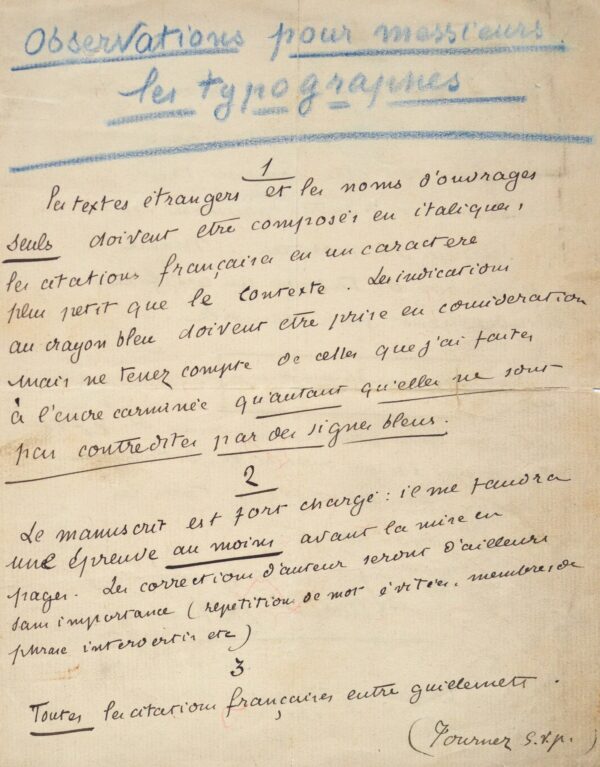 Observations pour messieurs
les typographes
1
les textes étrangers et les noms d'ouvrages
seuls doivent etre composés en italiques,
les citations françaises en un caractere
plus petit que le contexte. Les indications
au crayon bleu doivent etre prise en consideration
mais ne tenez compte de celles que j'ai faites
à l'encre carminée qu'autant qu'elles ne sont
pas contredites par des signes bleus.
2
Le manuscrit est fort chargé : il me faudra
une épreuve au moins avant la mise en
pages. Les corrections d'auteur seront d'ailleurs
sans importance (repetitions de mot évitées, membres de
phrase intervertis etc)
3
Toutes les citations françaises entre guillemets.
(Tournez S.v.p.)